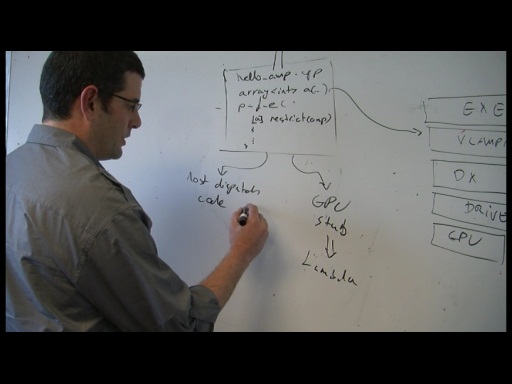 hello_amp.cpp
array<int> a(..)
p-f-e(.
[a] restrict(amp)
host dispatch
code
GPU
stub
Lambda
EXE
VCAMP
DX
DRIVE
GPU